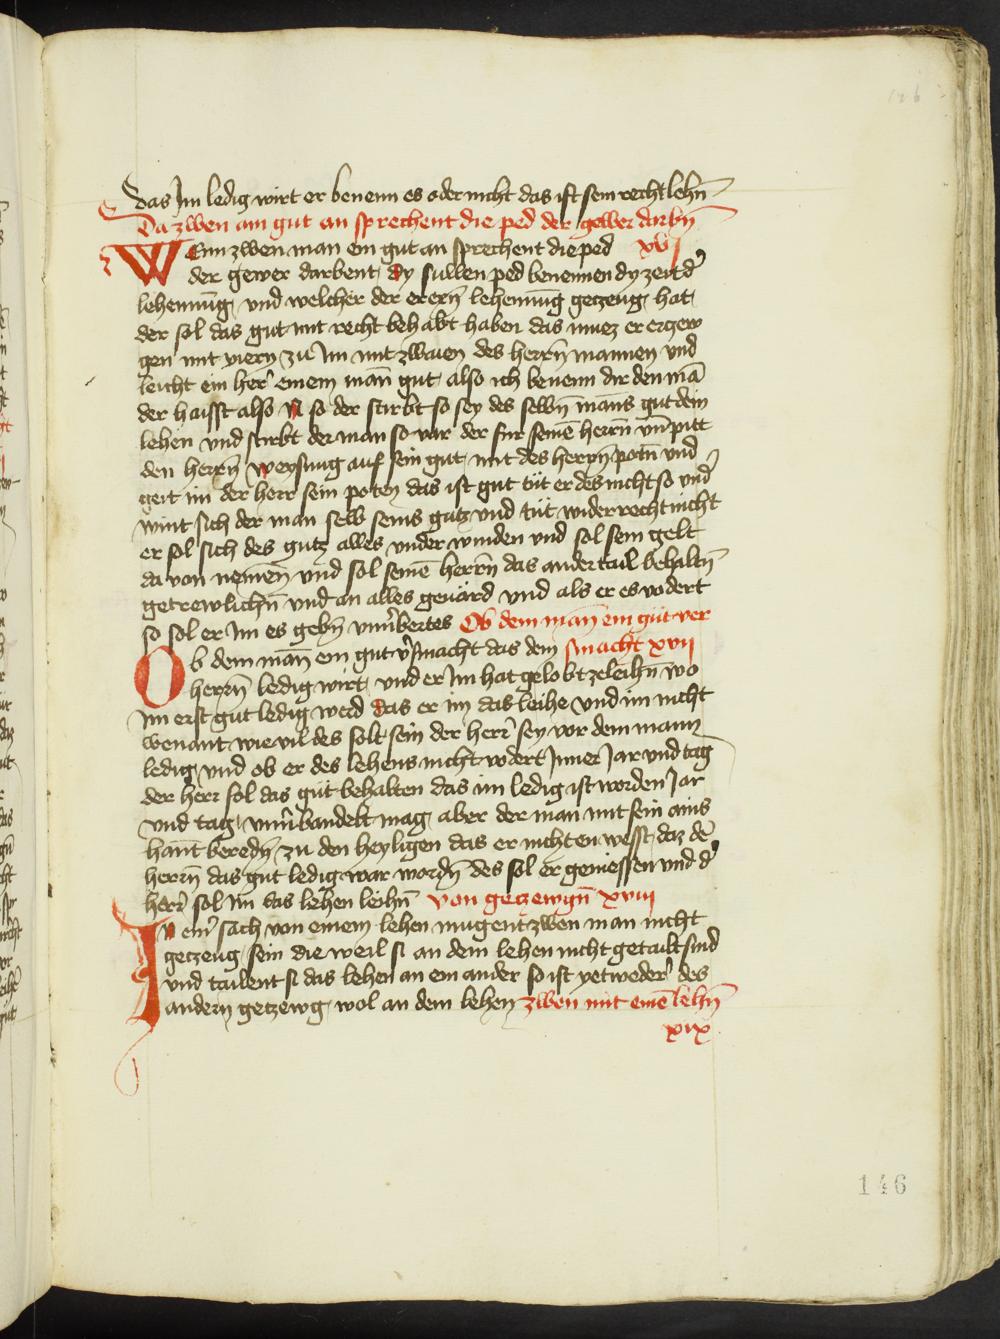 126
das Im ledig wirt er benenn es oder nicht das ist sein recht lehn̄
Da zwen ain gut an sprechent die ped der gewer darbn̄
WEnn zwen man ein gut an sprechent die ped xvj
der gewer darbent, dy sullen ped benennen dy zeit dˀ
lehennūg, und welcher der erern̄ lehennūg getzeug, hat,
der sol das gut mit recht behabt haben das muez er ertzew
gen mit viern, zu Im mit zwaien des herrn̄ mannen und
leicht ein herˀ einem man̄ gut, also ich benenn dir den mā
der haisst also N so der stirbt so sey des selbn̄ mans gut dein
lehen und stirbt der man so var der fur seinē herrn un̄ pitt
den herrn̄ weysung auf sein gut, mit des herrn poten̄ und
geit im der herr sein poten das ist gut tüt er des nicht so undˀ
wint sich der man selb seins gutz und tüt wider recht nicht
er sol sich des gutz alles under winden und sol sein gelt
da von nemen̄ und sol seinē herrn̄ das ander tail behaltn̄
getrewlichn̄ und an alles geuärd und als er es vodert
so sol er Im es gebn̄ unuˀbertes Ob dem man̄ ein gut ver
OB dem man̄ ein gut vˀsmacht das dem smacht xvii
herrn̄ ledig wirt, und er Im hat gelobt zeleihn̄ wo
im erst gut ledig werd das er im das leihe und im nicht
wenant wie vil des solt sein der herˀ sey vor dem mann
ledig und ob er des lehens nicht vodert Inner Jar und tag
der herr sol das gut behalten das im ledig ist worden Jar
und tag, unuˀbandelt mag, aber der man mit sein ains
hant beredn̄ zu den heyligen das er nicht en wesst, daz dˀ
herrn̄ das gut ledig war wordn̄ des sol er geniessen und dˀ
herˀ sol im das lehen leihn̄ Von getzewgn̄ xviii
IN einˀ sach von einem lehen mugent zwen man nicht
getzeug, sein die weil si an dem lehen nicht getailt sind
und tailent si das lehen an ein ander so ist yetwederˀ des
andern getzewg, wol an dem lehen zwen mit einē lehn̄
xix
146